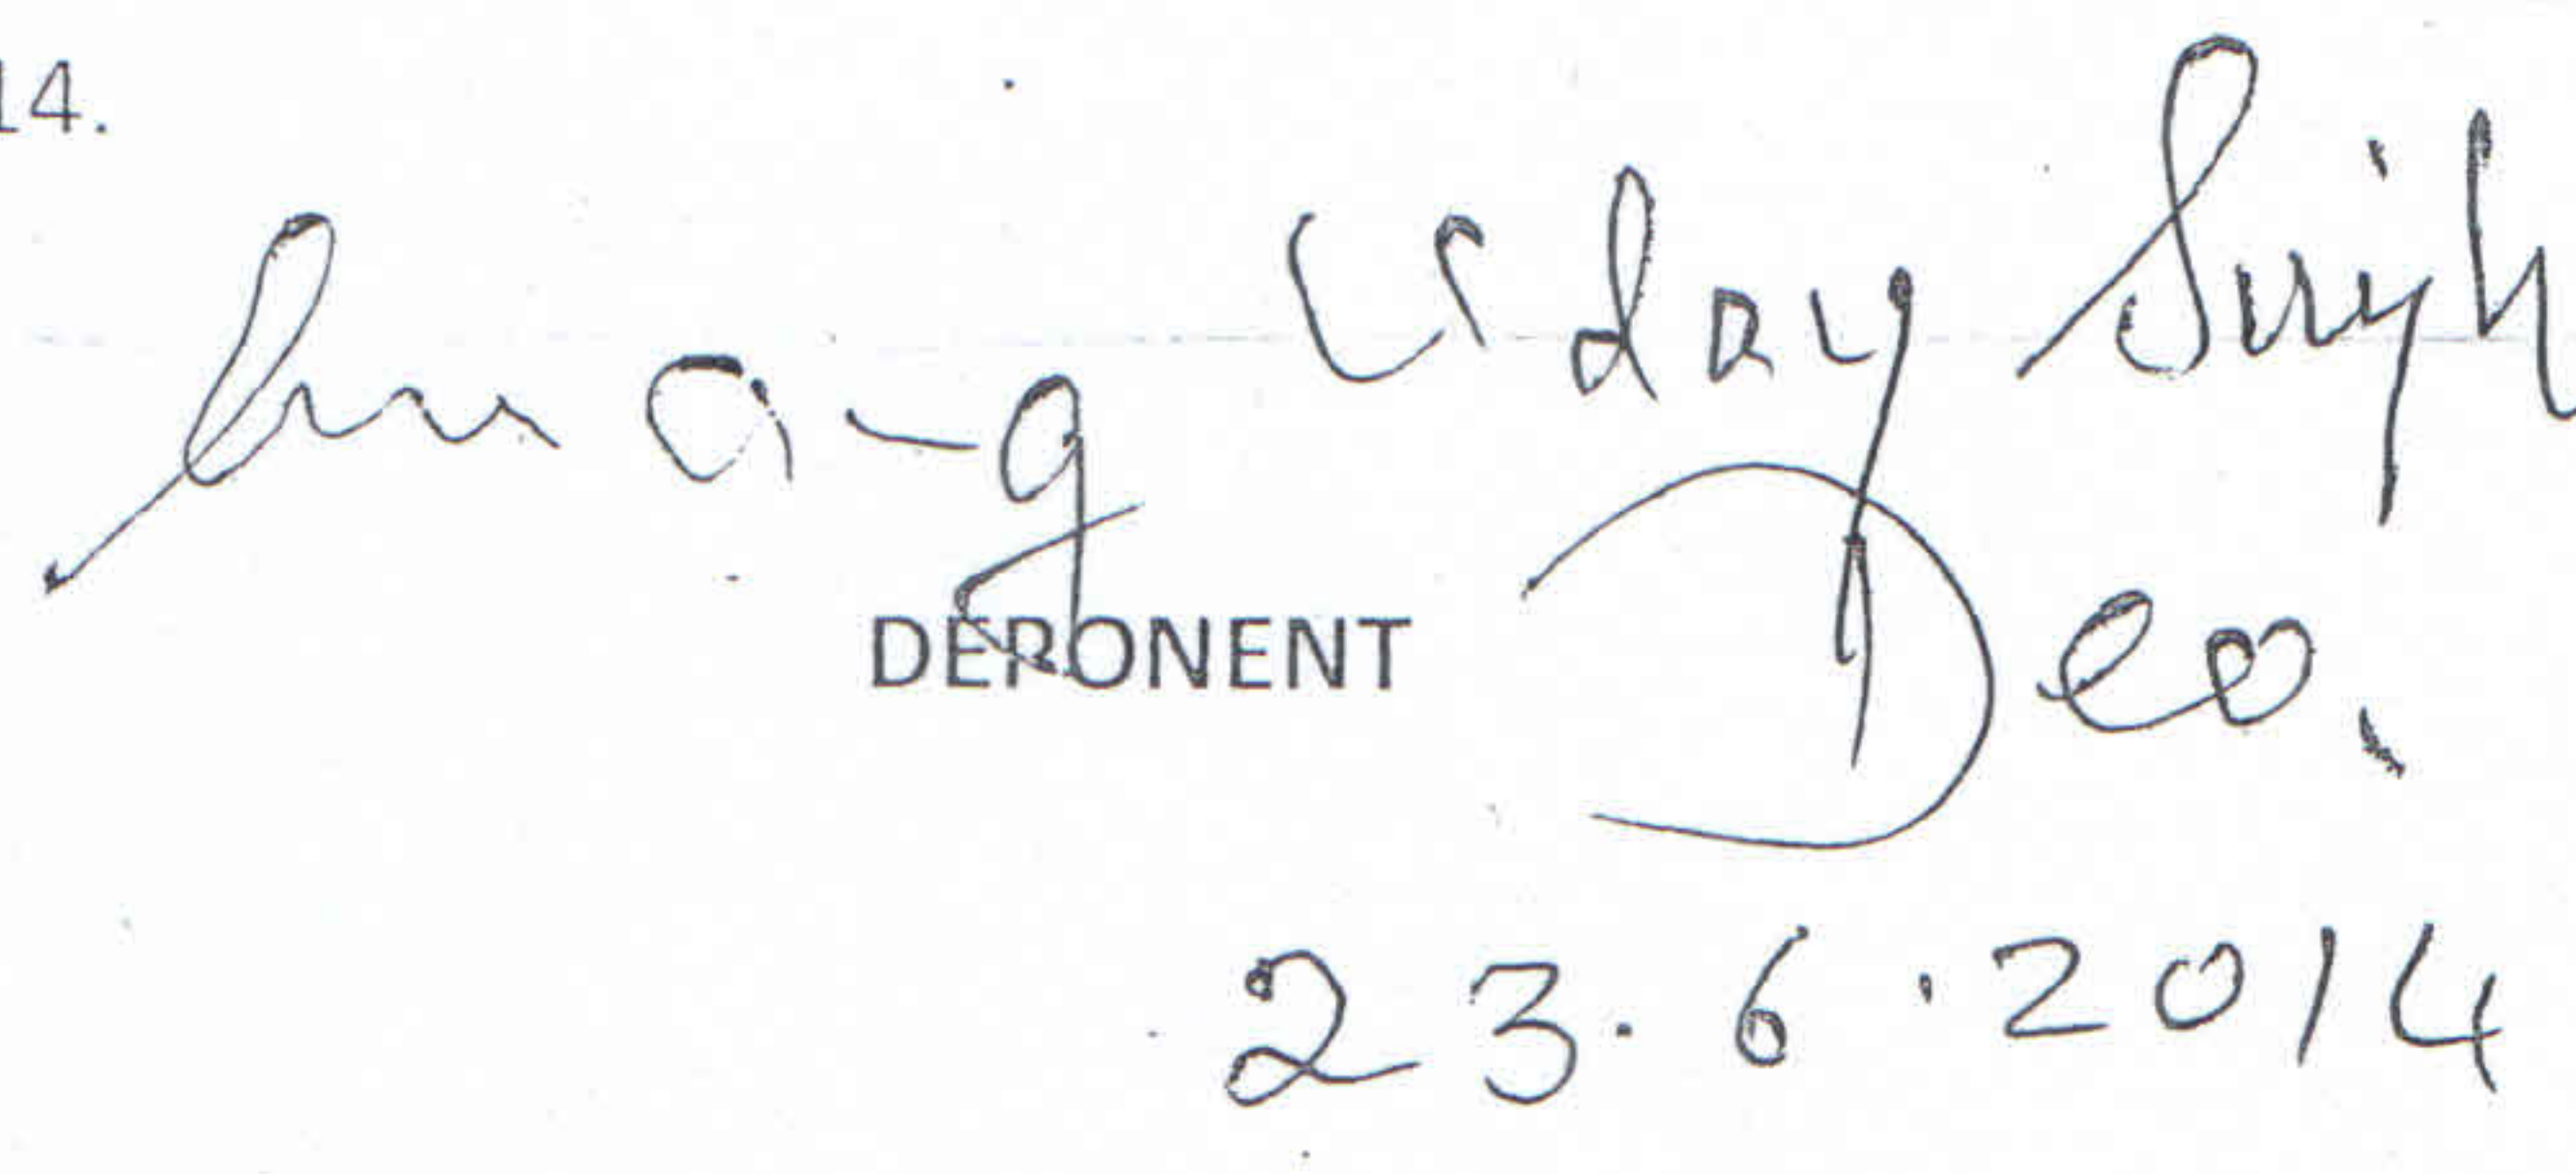 14.
Uday Singh
DEPONENT
Deo.
23.6.2014